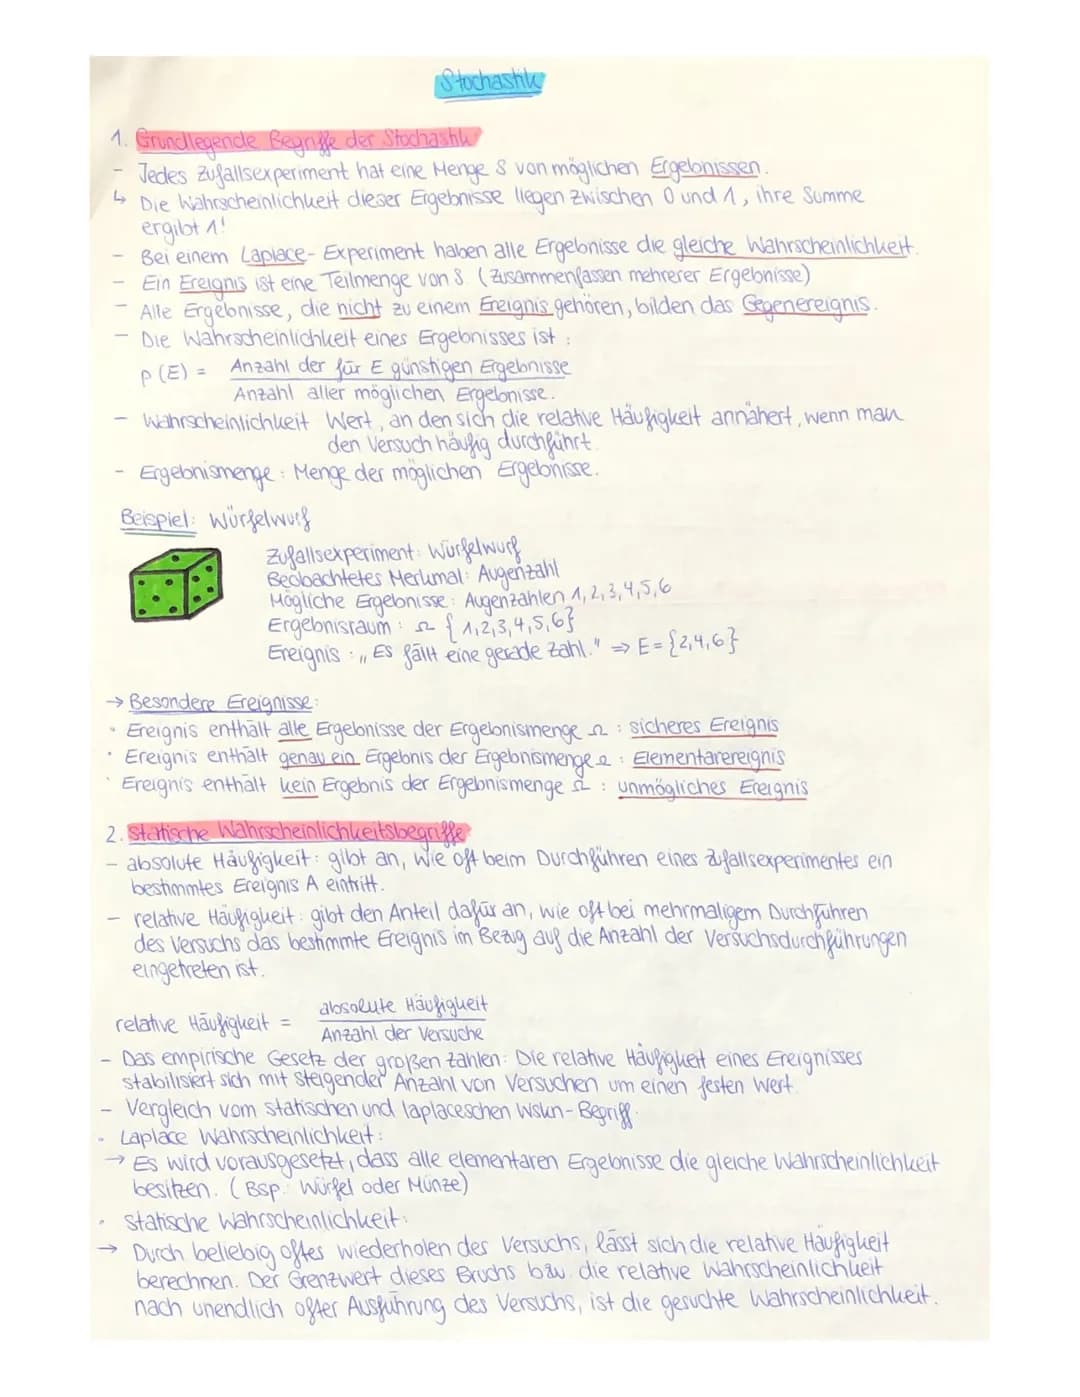 Stochastik
1. Grundlegende Begriffe der Stochastik
- Jedes Zufallsexperiment hat eine Menge S von möglichen Ergebnissen.
↳ Die Wahrscheinlichkeit dieser Ergebnisse liegen zwischen 0 und 1, ihre Summe
ergibt 1!
- Bei einem Laplace-Experiment haben alle Ergebnisse die gleiche Wahrscheinlichkeit.
- Ein Ereignis ist eine Teilmenge von S (Zusammenfassen mehrerer Ergebnisse)
- Alle Ergebnisse, die nicht zu einem Ereignis gehören, bilden das Gegenereignis.
- Die Wahrscheinlichkeit eines Ergebnisses ist :
p (E) = Anzahl der für E günstigen Ergebnisse
Anzahl aller möglichen Ergebnisse.
- Wahrscheinlichkeit Wert, an den sich die relative Häufigkeit annähert, wenn man
den Versuch häufig durchführt.
- Ergebnismenge : Menge der möglichen Ergebnisse.
Beispiel: Würfelwurf
Zufallsexperiment: Würfelwurf
Beobachtetes Merkmal: Augenzahl
Mögliche Ergebnisse: Augenzahlen 1,2,3,4,5,6
Ergebnisraum : Ω {1,2,3,4,5,6}
Ereignis : „Es fällt eine gerade Zahl." ⇒ E = {2,4,6}
→ Besondere Ereignisse:
• Ereignis enthält alle Ergebnisse der Ergebnismenge Ω : sicheres Ereignis
• Ereignis enthält genau ein Ergebnis der Ergebnismenge Ω : Elementarereignis
• Ereignis enthält kein Ergebnis der Ergebnismenge Ω : unmögliches Ereignis
2. Statische Wahrscheinlichkeitsbegriffe
- absolute Häufigkeit: gibt an, wie oft beim Durchführen eines Zufallsexperimentes ein
bestimmtes Ereignis A eintritt.
- relative Häufigkeit: gibt den Anteil dafür an, wie oft bei mehrmaligem Durchführen
des Versuchs das bestimmte Ereignis im Bezug auf die Anzahl der Versuchsdurchführungen
eingetreten ist.
relative Häufigkeit = absolute Häufigkeit
Anzahl der Versuche
- Das empirische Gesetz der großen Zahlen: Die relative Häufigkeit eines Ereignisses
stabilisiert sich mit steigender Anzahl von Versuchen um einen festen Wert.
- Vergleich vom statischen und laplaceschen Wskn-Begriff.
• Laplace Wahrscheinlichkeit:
→ Es wird vorausgesetzt, dass alle elementaren Ergebnisse die gleiche Wahrscheinlichkeit
besitzen. (Bsp. Würfel oder Münze)
• statische Wahrscheinlichkeit:
→ Durch beliebig oftes wiederholen des Versuchs, lässt sich die relative Häufigkeit
berechnen. Der Grenzwert dieses Bruchs bzw. die relative Wahrscheinlichkeit
nach unendlich ofter Ausführung des Versuchs, ist die gesuchte Wahrscheinlichkeit.